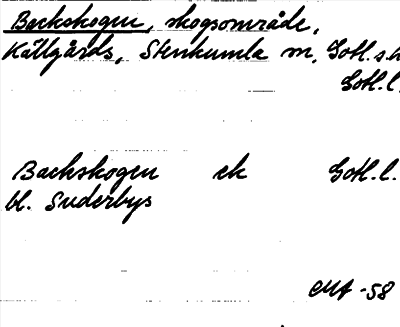 Backskogen, skogsområde,
Källgårds, Stenkumla sn, Gotl. s. h
Gotl. l.
Backskogen ek Gotl. l.
bl. Suderbys
-58